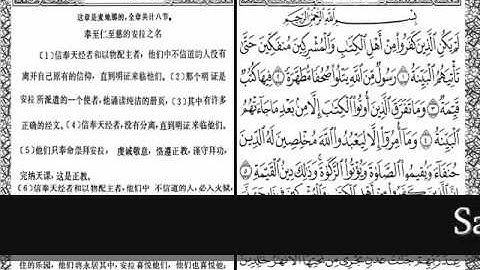 这章是麦地那的，全章共计八节。
奉至仁至慈的安拉之名
（1）信奉天经者和以物配主者，他们中不信道的人没有
离开自己原有的信仰，直到明证来临他们。（2）那个明证是
安拉所派遣的一个使者，他诵读纯洁的册页，（3）其中有许多
正确的经文。（4）信奉天经者，没有分离，直到明证来临他们。
（5）他们只奉命崇拜安拉， 虔诚敬意，恪遵正教，谨守拜功，
完纳天课，这是正教。
（6）信奉天经者和以物配主者，他们中 不信道的人，必入火狱，
住的乐园，他们将永居其中，安拉喜悦他们，他们也喜悦他；
بِسْمِ اللَّهِ الرَّحْمَٰنِ الرَّحِيمِ
لَمْ يَكُنِ الَّذِينَ كَفَرُوا مِنْ أَهْلِ الْكِتَابِ وَالْمُشْرِكِينَ مُنفَكِّينَ حَتَّىٰ
تَأْتِيَهُمُ الْبَيِّنَةُ ١ رَسُولٌ مِّنَ اللَّهِ يَتْلُو صُحُفًا مُّطَهَّرَةً ٢ فِيهَا كُتُبٌ
قَيِّمَةٌ ٣ وَمَا تَفَرَّقَ الَّذِينَ أُوتُوا الْكِتَابَ إِلَّا مِن بَعْدِ مَا جَاءَتْهُمُ
الْبَيِّنَةُ ٤ وَمَا أُمِرُوا إِلَّا لِيَعْبُدُوا اللَّهَ مُخْلِصِينَ لَهُ الدِّينَ
حُنَفَاءَ وَيُقِيمُوا الصَّلَاةَ وَيُؤْتُوا الزَّكَاةَ وَذَٰلِكَ دِينُ الْقَيِّمَةِ ٥
Sa